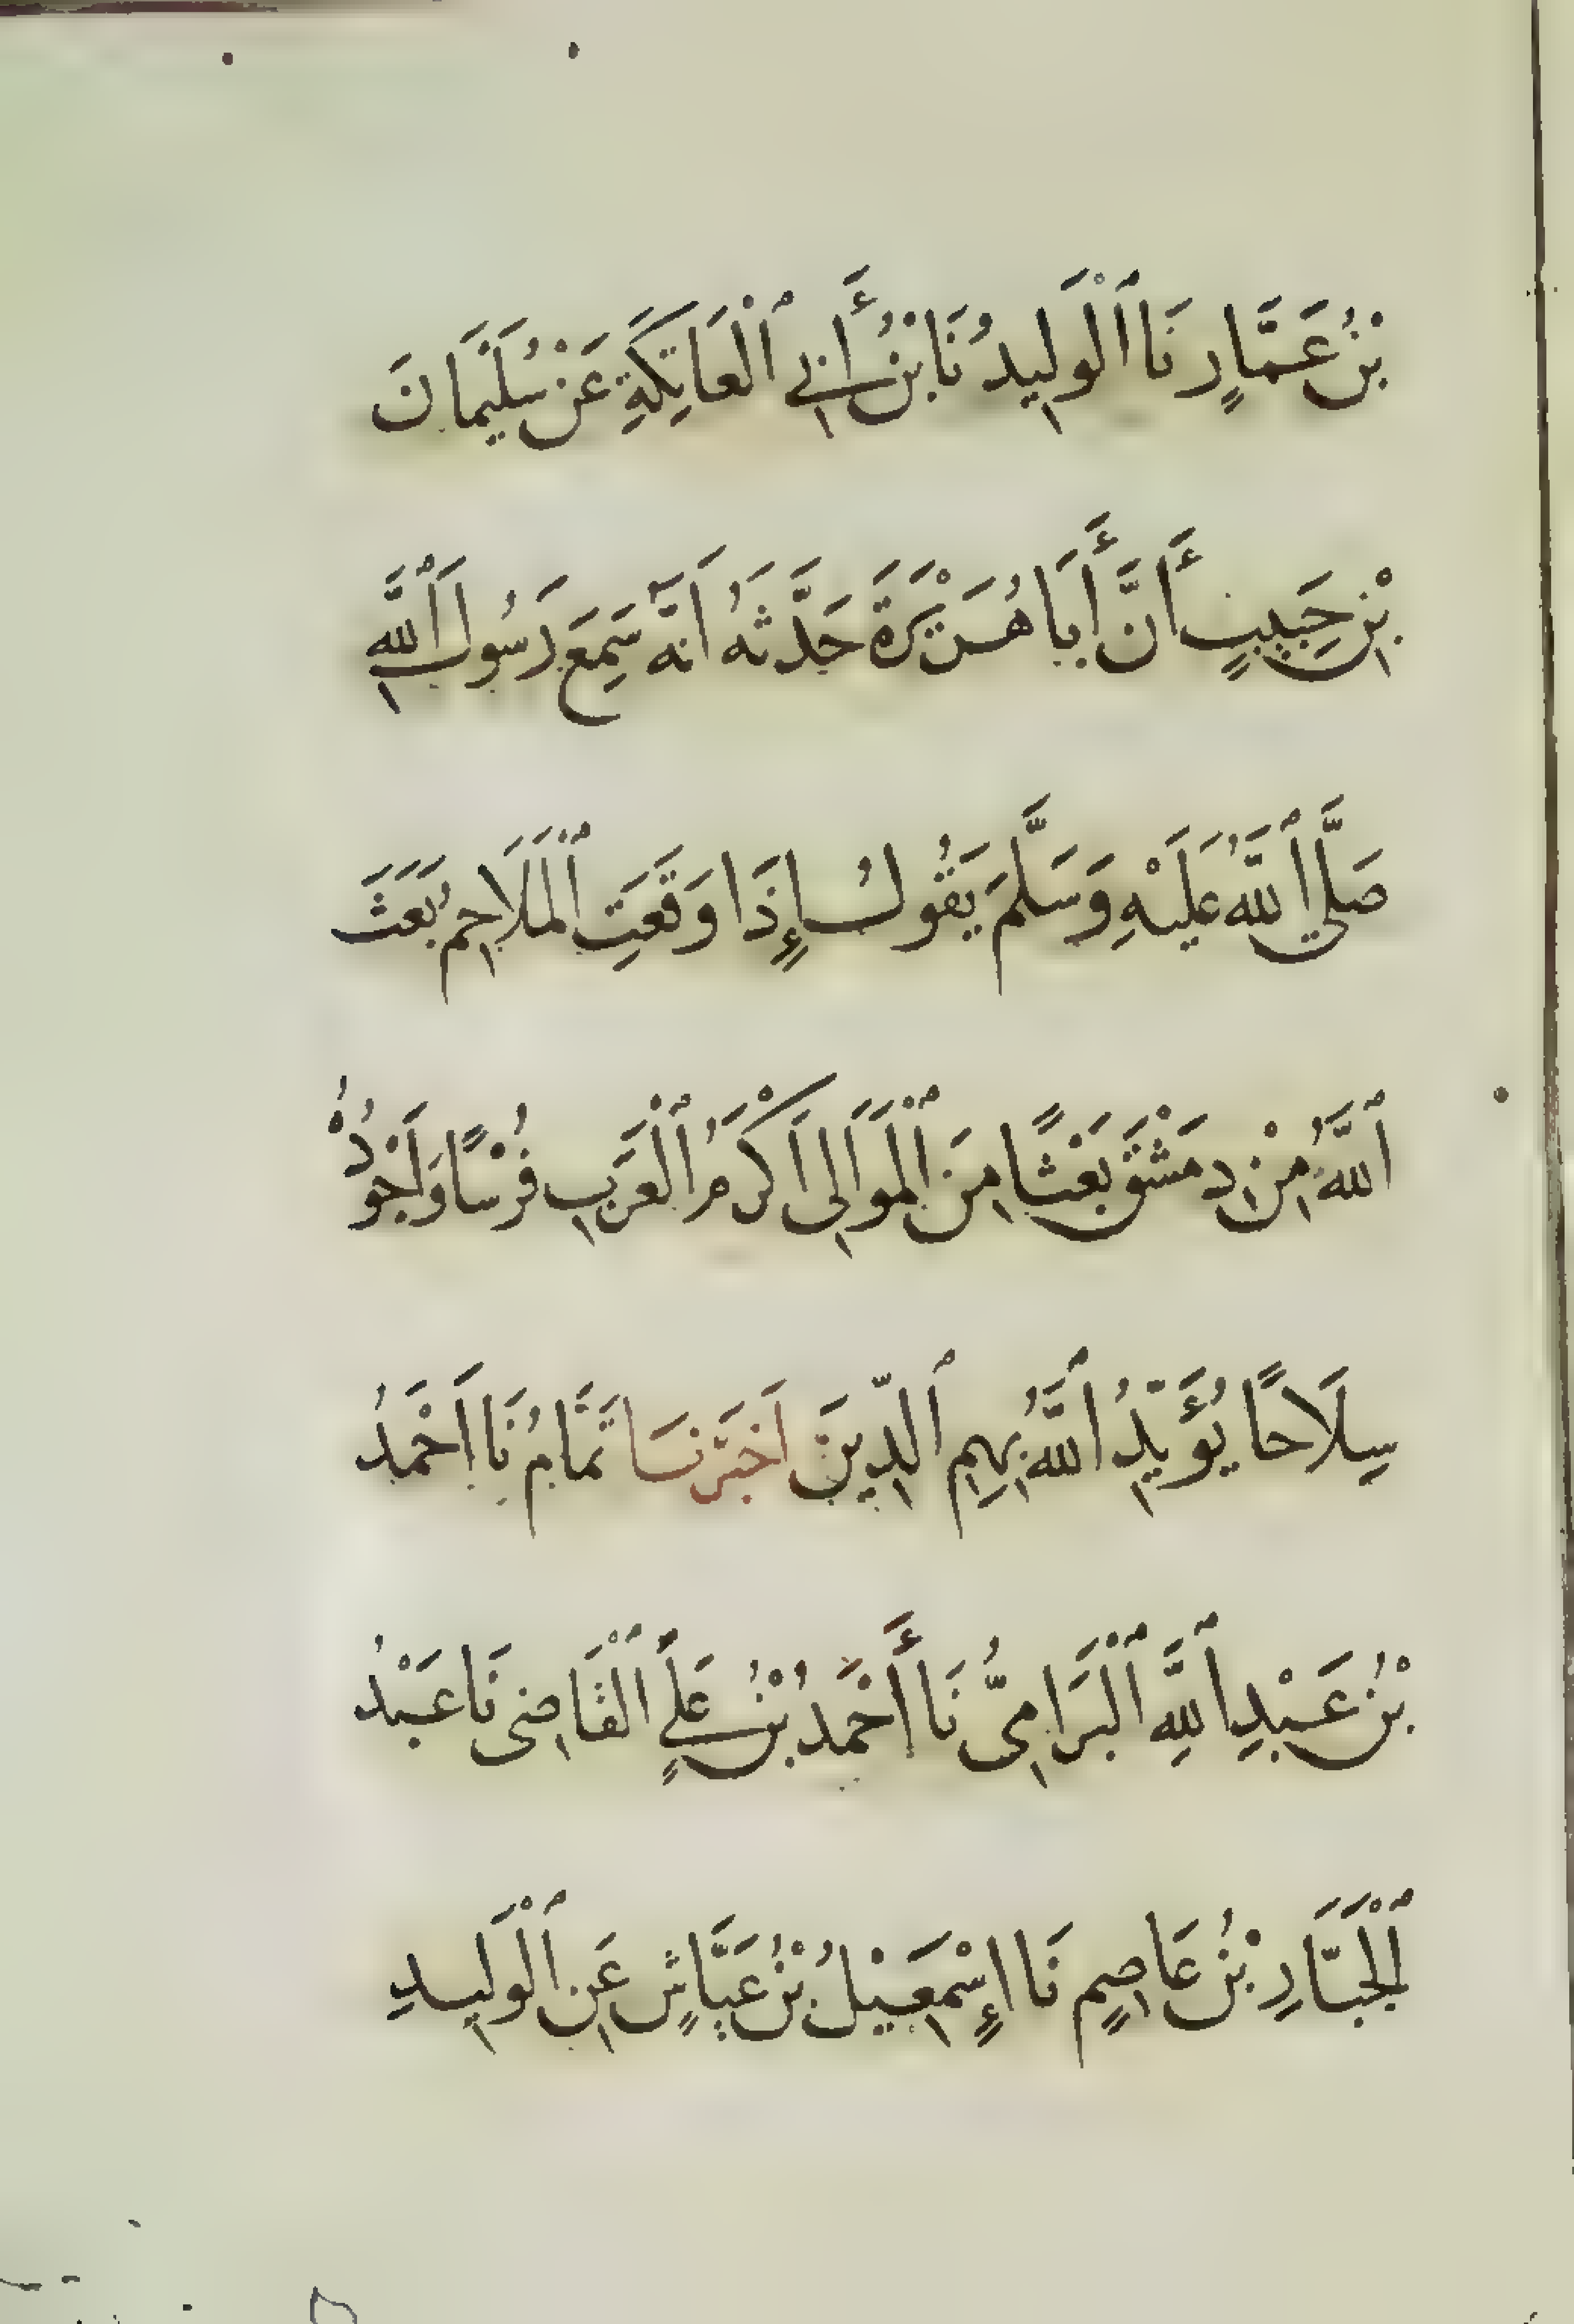 بْنُ عَمَّارٍ نَا ٱلْوَلِيدُ نَا بْنُ أَبِي ٱلْعَاتِكَةِ عَنْ سُلَيْمَانَ
بْنِ حَبِيبٍ أَنَّ أَبَا هُرَيْرَةَ حَدَّثَهُ اَنَّهُ سَمِعَ رَسُولَ ٱللَّهِ
صَلَّى ٱللَّهُ عَلَيْهِ وَسَلَّمَ يَقُولُ إِذَا وَقَعَتِ ٱلْمَلَاحِمُ بَعَثَ
ٱللَّهُ مِنْ دِمَشْقَ بَعْثًا مِنَ ٱلْمَوَالِى اَكْرَمُ ٱلْعَرَبِ فُرْسًا وَاَجْوَدُهُ
سِلَاحًا يُؤَيِّدُ ٱللَّهُ بِهِمِ ٱلدِّينَ اَخْبَرَنَا تَمَّامُ نَا اَحْمَدُ
بْنُ عَبْدِ ٱللَّهِ ٱلْبَرَامِىُّ نَا أَحْمَدُ بْنُ عَلِيٍّ ٱلْقَاضِى نَا عَبْدُ
ٱلْجَبَّارِ بْنُ عَاصِمٍ نَا إِسْمَعِيْلُ بْنُ عَيَّاشٍ عَنِ ٱلْوَلِيدِ